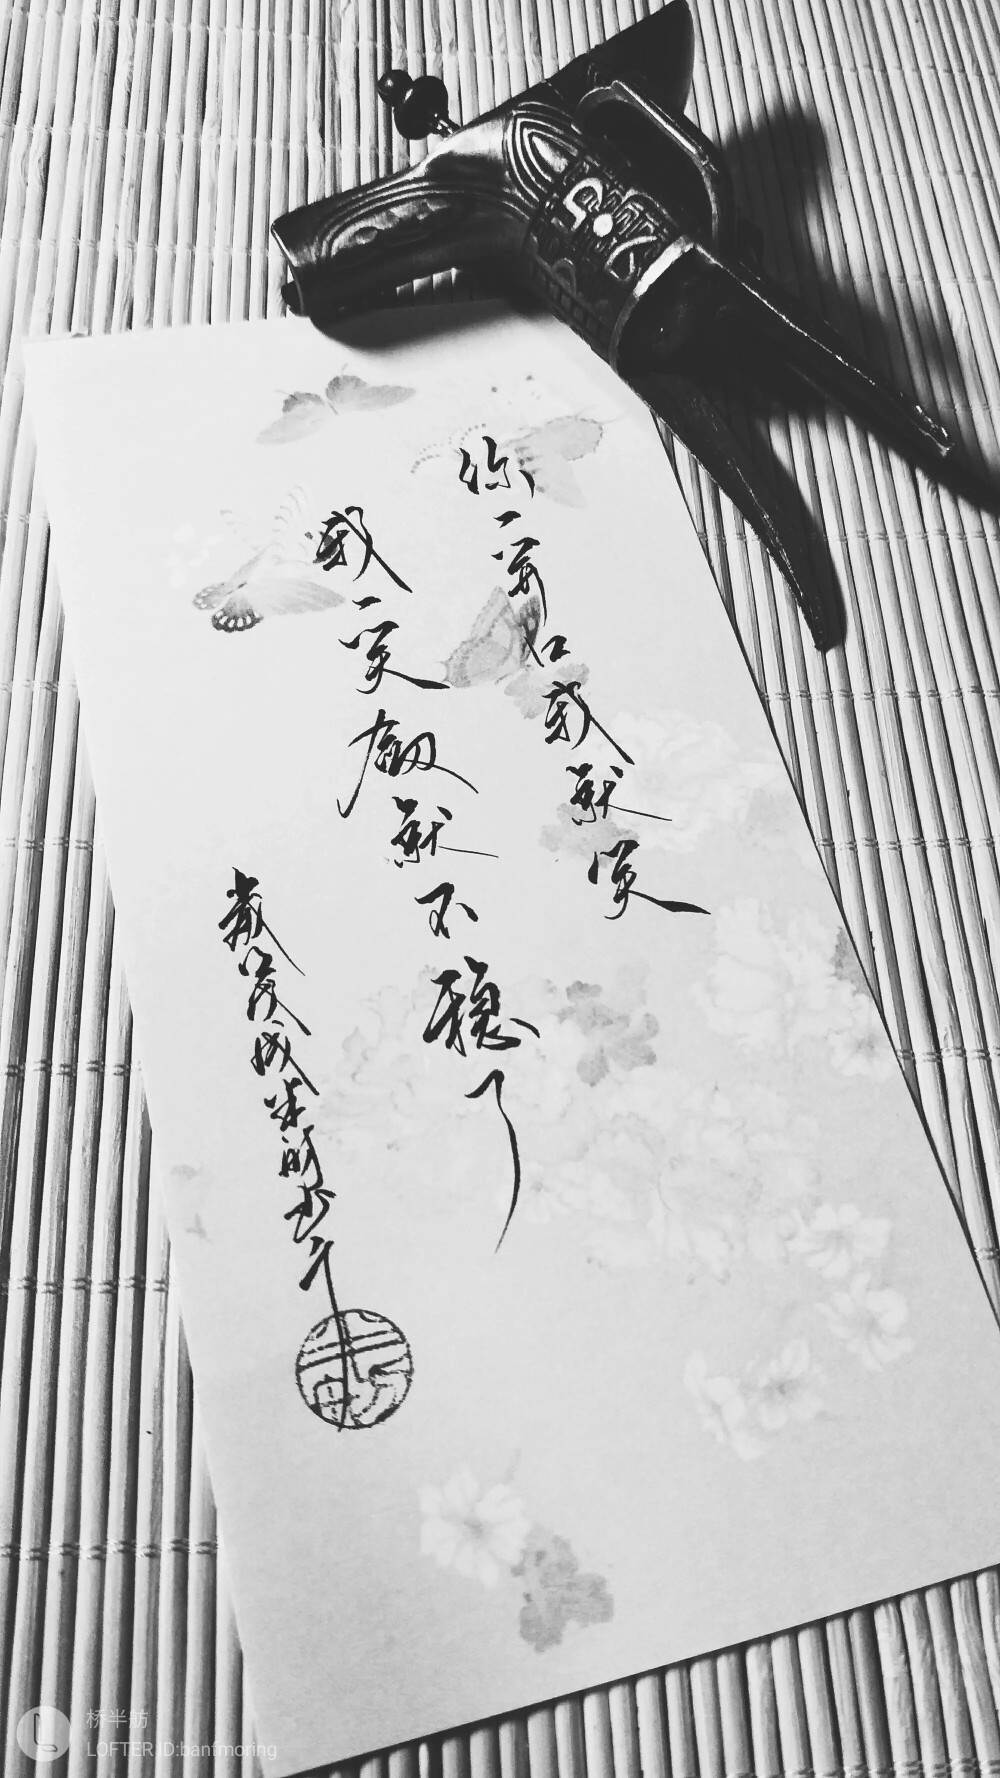 你一开口我就笑
我一笑劔就不穩了
半舫书
半舫
桥半舫
LOFTER ID:banfmoring